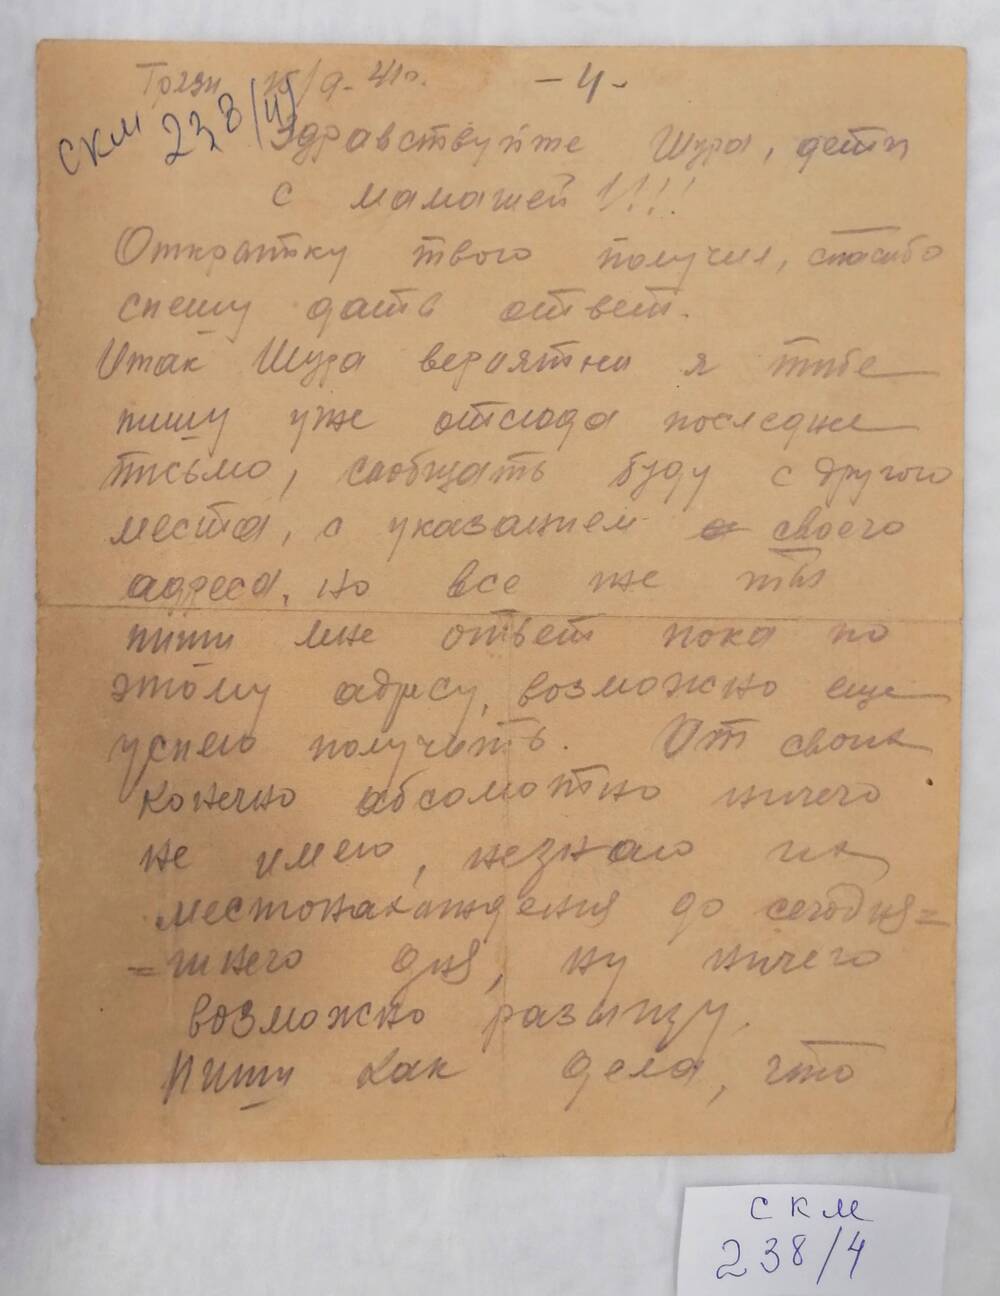 /9-41г. -4-
СКМ 238/4
Здравствуйте Шура, дети
с мамашей !!!!
Открытку твою получил, спасибо
спешу дать ответ.
Итак Шура вероятно я тибе
пишу уже отсюда последне
письмо, сообщать буду с другого
места, с указанием своего
адреса, но все же ты
пиши мне ответ пока по
этому адресу, возможно еще
успею получить. От своих
конечно абсомотно ничего
не имею, незнаю их
местонахождения до сегодня=
=шнего дня, ну ничего
возможно разыщу.
Пиши как дела, что
СКМ
238/4